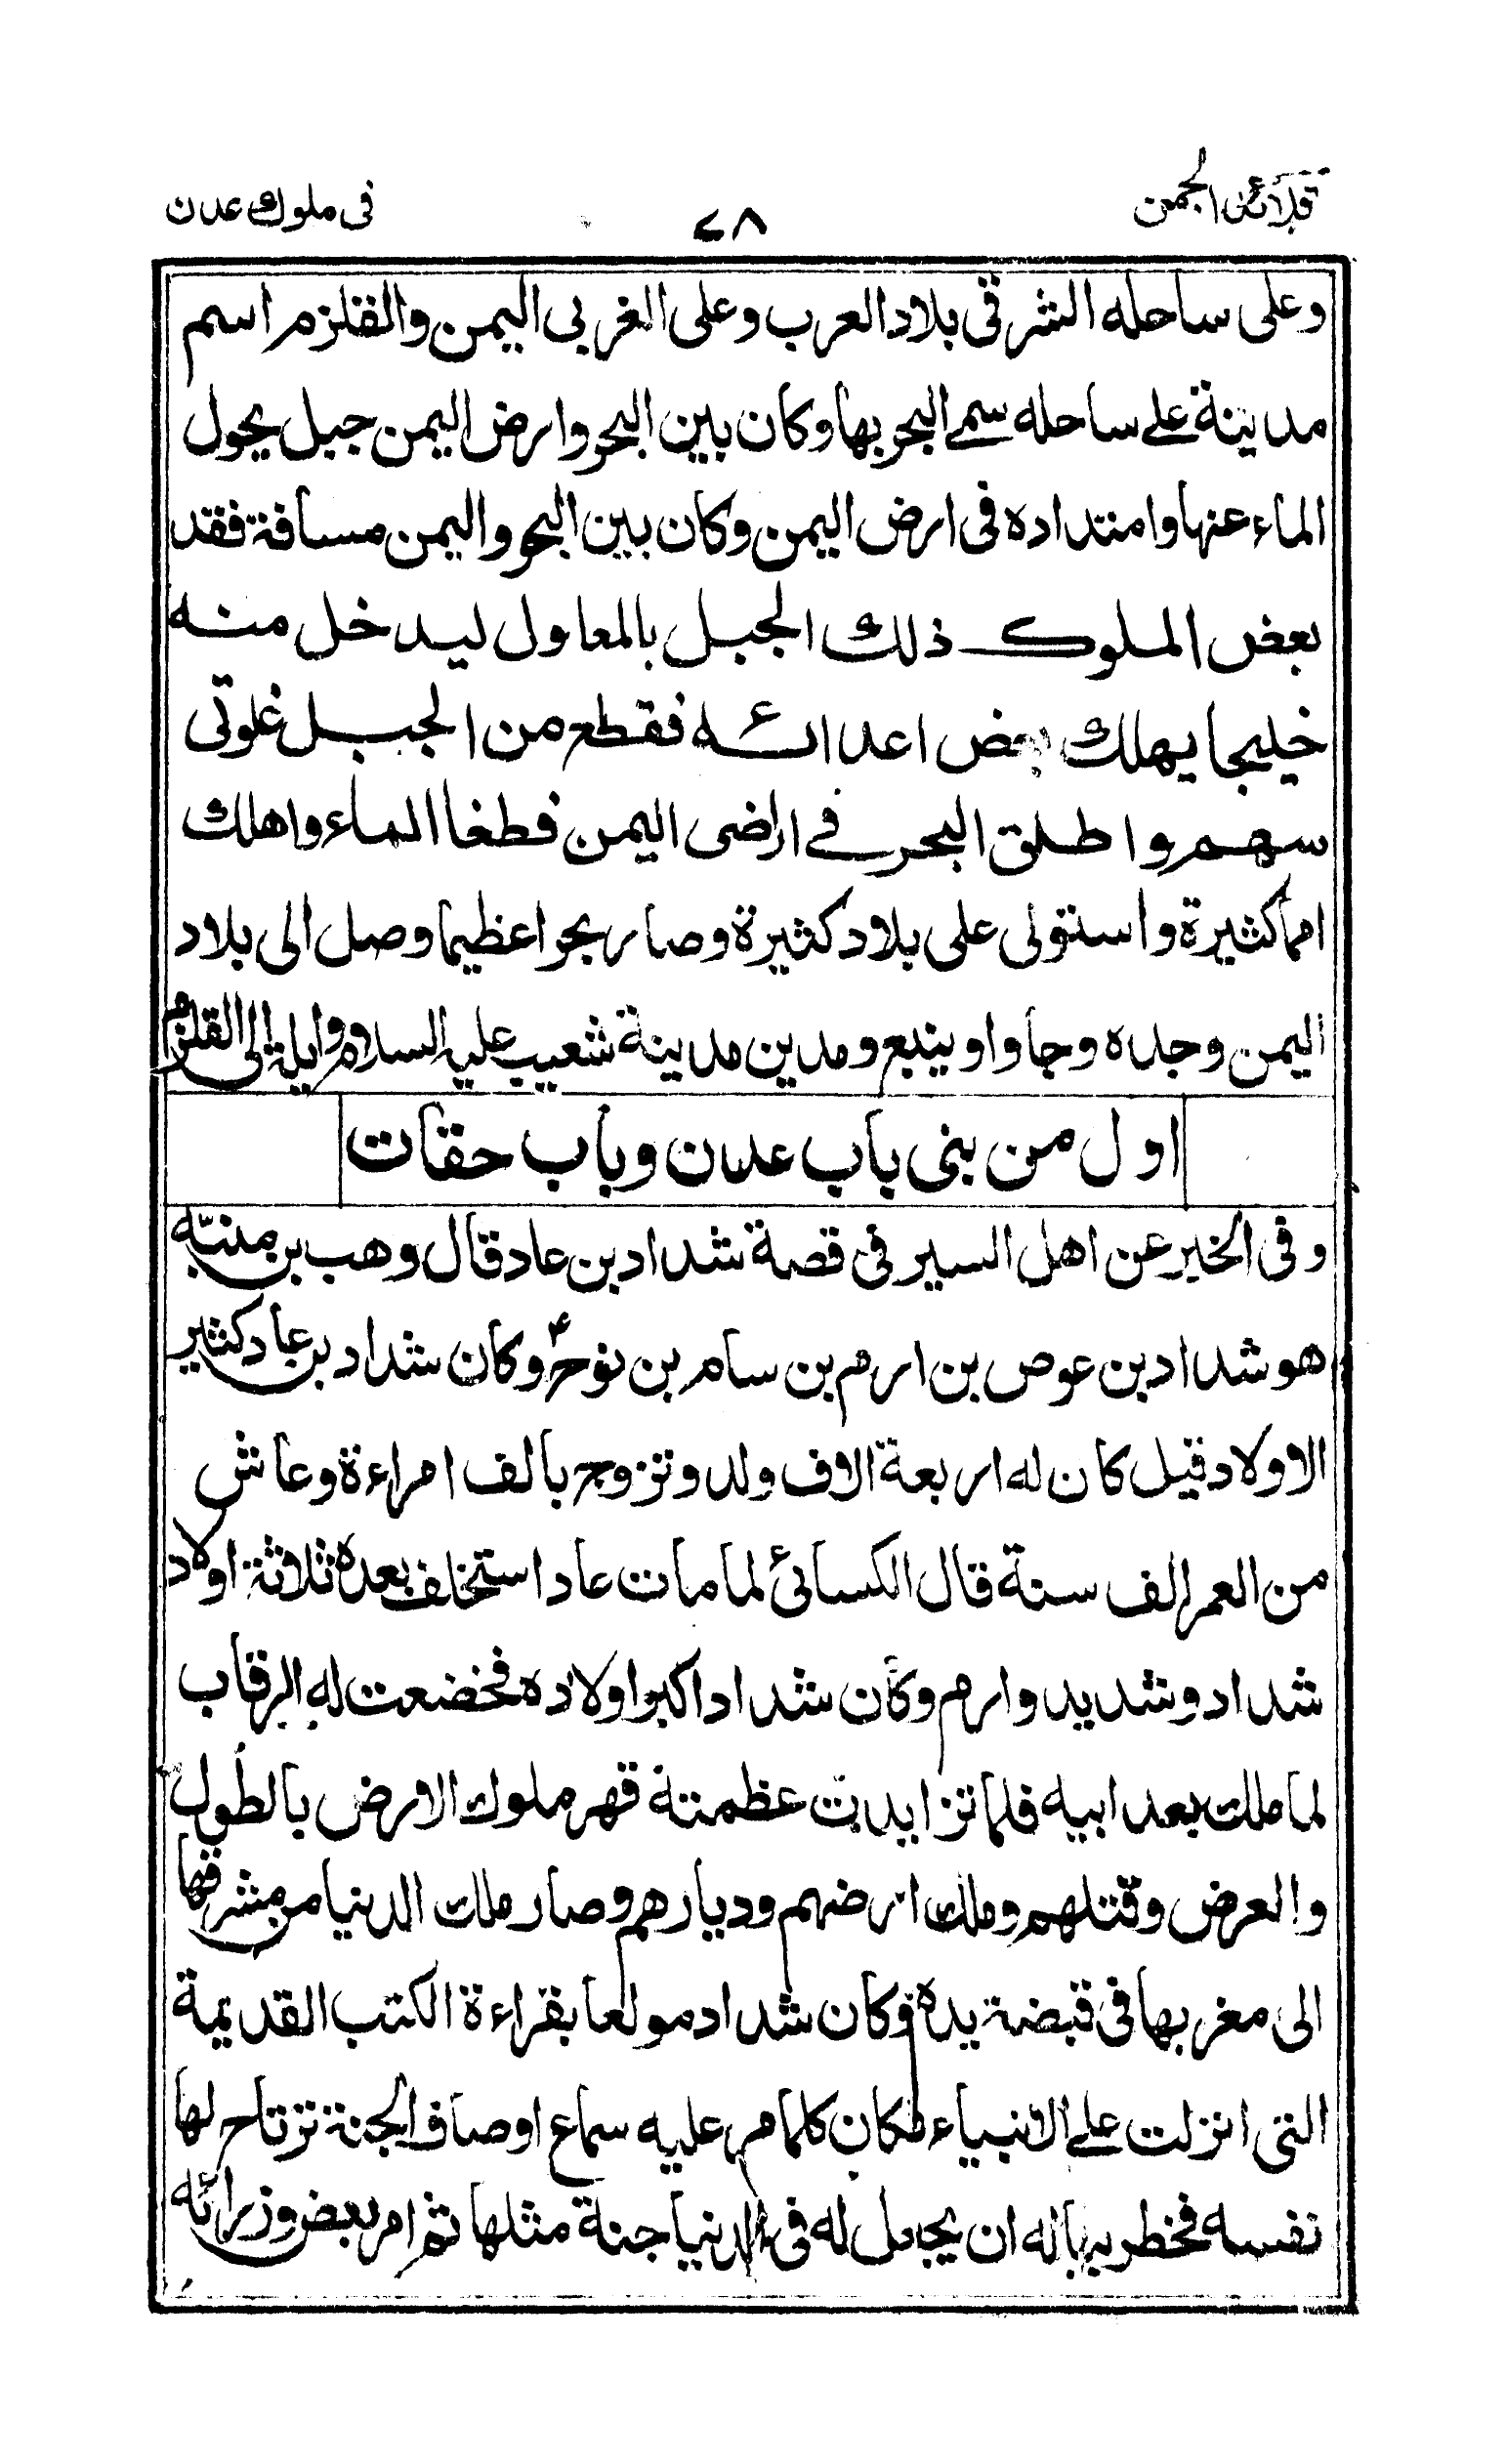 قلائد الجمن
٧٨
في ملوك عدن
وعلى ساحله الشرقي بلاد العرب وعلى الغربي اليمن والقلزم اسم
مدينة على ساحله سمى البحر بها وكان بين البحر وارض اليمن جبل يحول
الماء عنها وامتداده في ارض اليمن وكان بين البحر واليمن مسافة فقد
بعض الملوك ذلك الجبل بالمعاول ليدخل منه
خليجا يهلك بعض اعدائه فقطع من الجبل غلوتى
سهم واطلق البحر في اراضى اليمن فطغا الماء واهلك
امما كثيرة واستولى على بلاد كثيرة وصار بحرا عظيما وصل الى بلاد
اليمن وجده وجاوا وينبع ومدين مدينة شعيب عليه السلام وايلة الى القلزم
اول من بنى باب عدن وباب حقات
وفى الخبر عن اهل السير فى قصة شداد بن عاد قال وهب بن منبّه
هو شداد بن عوص بن ارم بن سام بن نوح ؑ وكان شداد بن عاد كثير
الاولاد قيل كان له اربعة الاف ولد وتزوج بالف امراءة وعاش
من العمر الف سنة قال الكسائئ لما مات عاد استخلف بعده ثلاثة اولاد
شداد وشديد وارم وكان شداد اكبر اولاده فخضعت له الرقاب
لما ملك بعد ابيه فلما تزايدت عظمتة قهر ملوك الارض بالطول
والعرض وقتلهم وملك ارضهم وديارهم وصار ملك الدنيا من مشرقها
الى مغربها فى قبضة يده وكان شداد مولعا بقراءة الكتب القديمة
التى انزلت على الانبياء فكان كلما مر عليه سماع اوصاف الجنة ترتاح لها
نفسه فخطر بباله ان يجعل له فى الدنيا جنة مثلها ثم امر بعض وزرائه